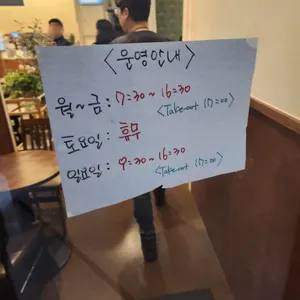 <운영안내>
월~금 : 17=30 ~ 16=30
<Take-out 17=00>
토요일 : 휴무
일요일 : 9=30 ~ 16=30
<Take-out 17=00>